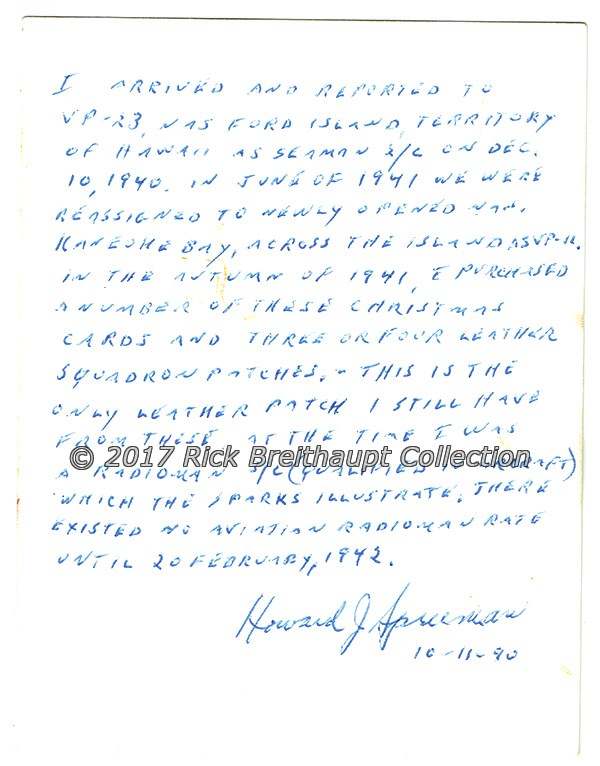 I ARRIVED AND REPORTED TO
VP-23, NAS FORD ISLAND, TERRITORY
OF HAWAII AS SEAMAN 2/C ON DEC.
10, 1940. IN JUNE OF 1941 WE WERE
REASSIGNED TO NEWLY OPENED NAS,
KANEOHE BAY, ACROSS THE ISLAND AS VP-12.
IN THE AUTUMN OF 1941, I PURCHASED
A NUMBER OF THESE CHRISTMAS
CARDS AND THREE OR FOUR LEATHER
SQUADRON PATCHES. - THIS IS THE
ONLY LEATHER PATCH I STILL HAVE
FROM THESE AT THE TIME I WAS
A RADIOMAN /C (QUALIFIED IN AIRCRAFT)
© 2017 Rick Breithaupt Collection
WHICH THE SPARKS ILLUSTRATE, THERE
EXISTED NO AVIATION RADIOMAN RATE
UNTIL 20 FEBRUARY, 1942.
Howard J. Spreeman
10-11-90